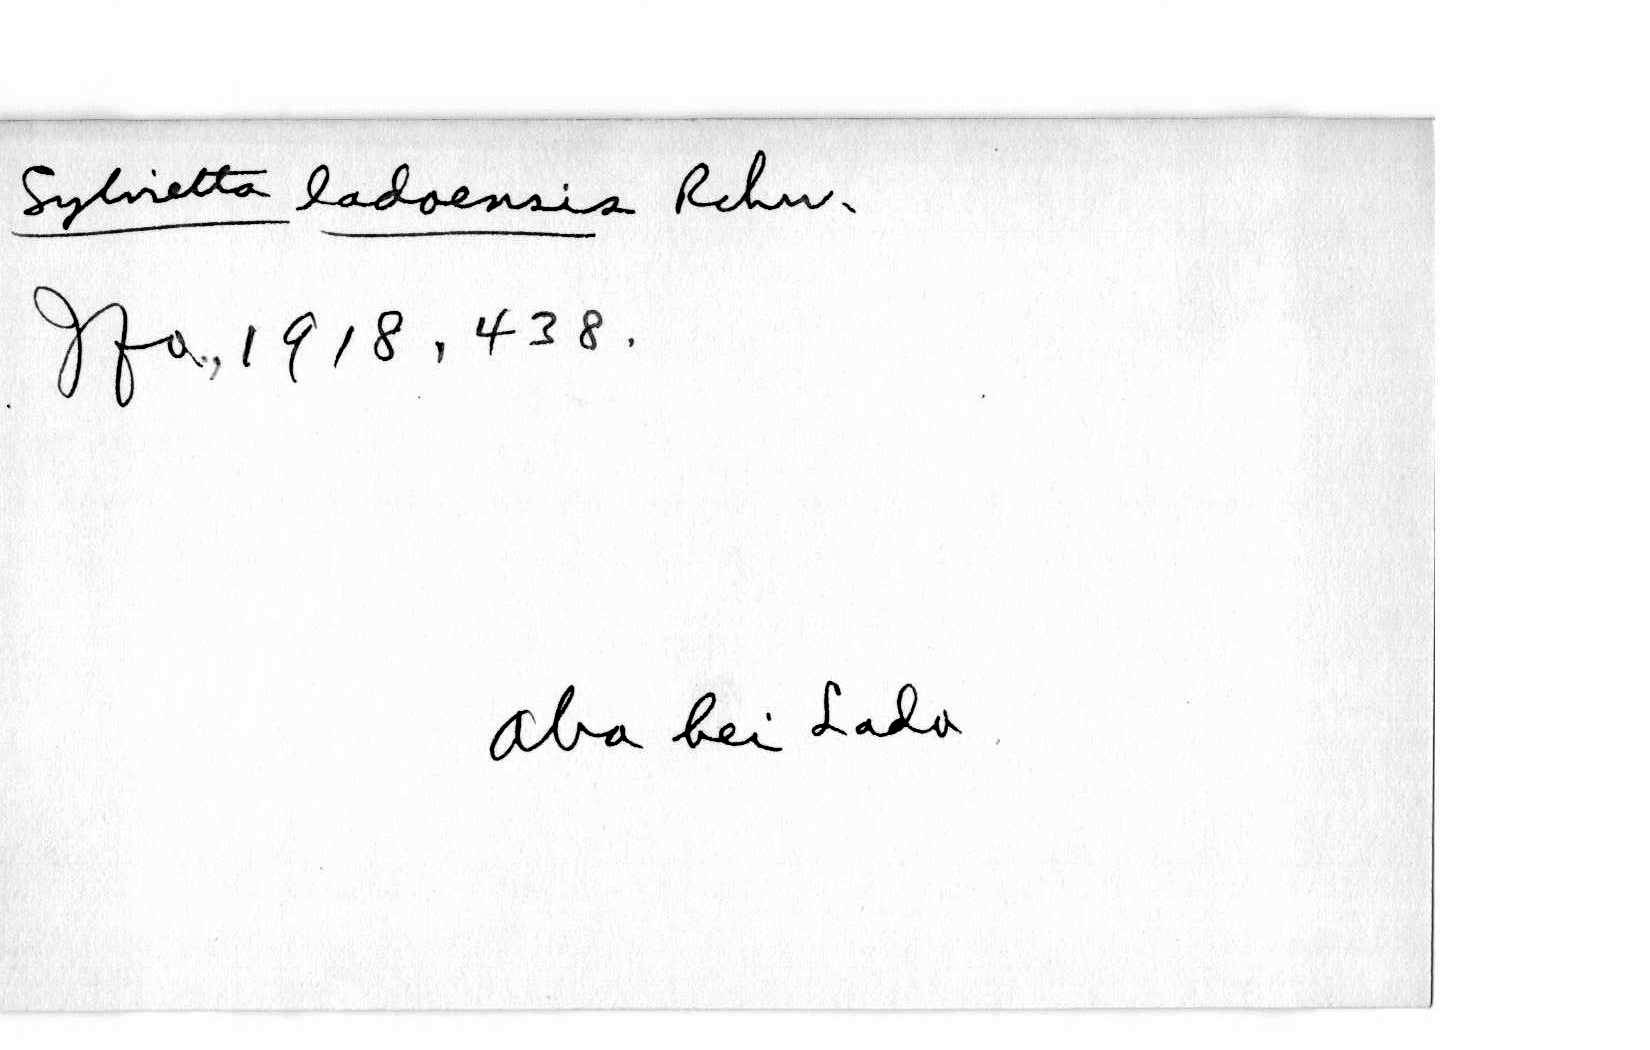 Sylvietta ladoensis Rchw.
Jfo., 1918, 438.
Aba bei Lado